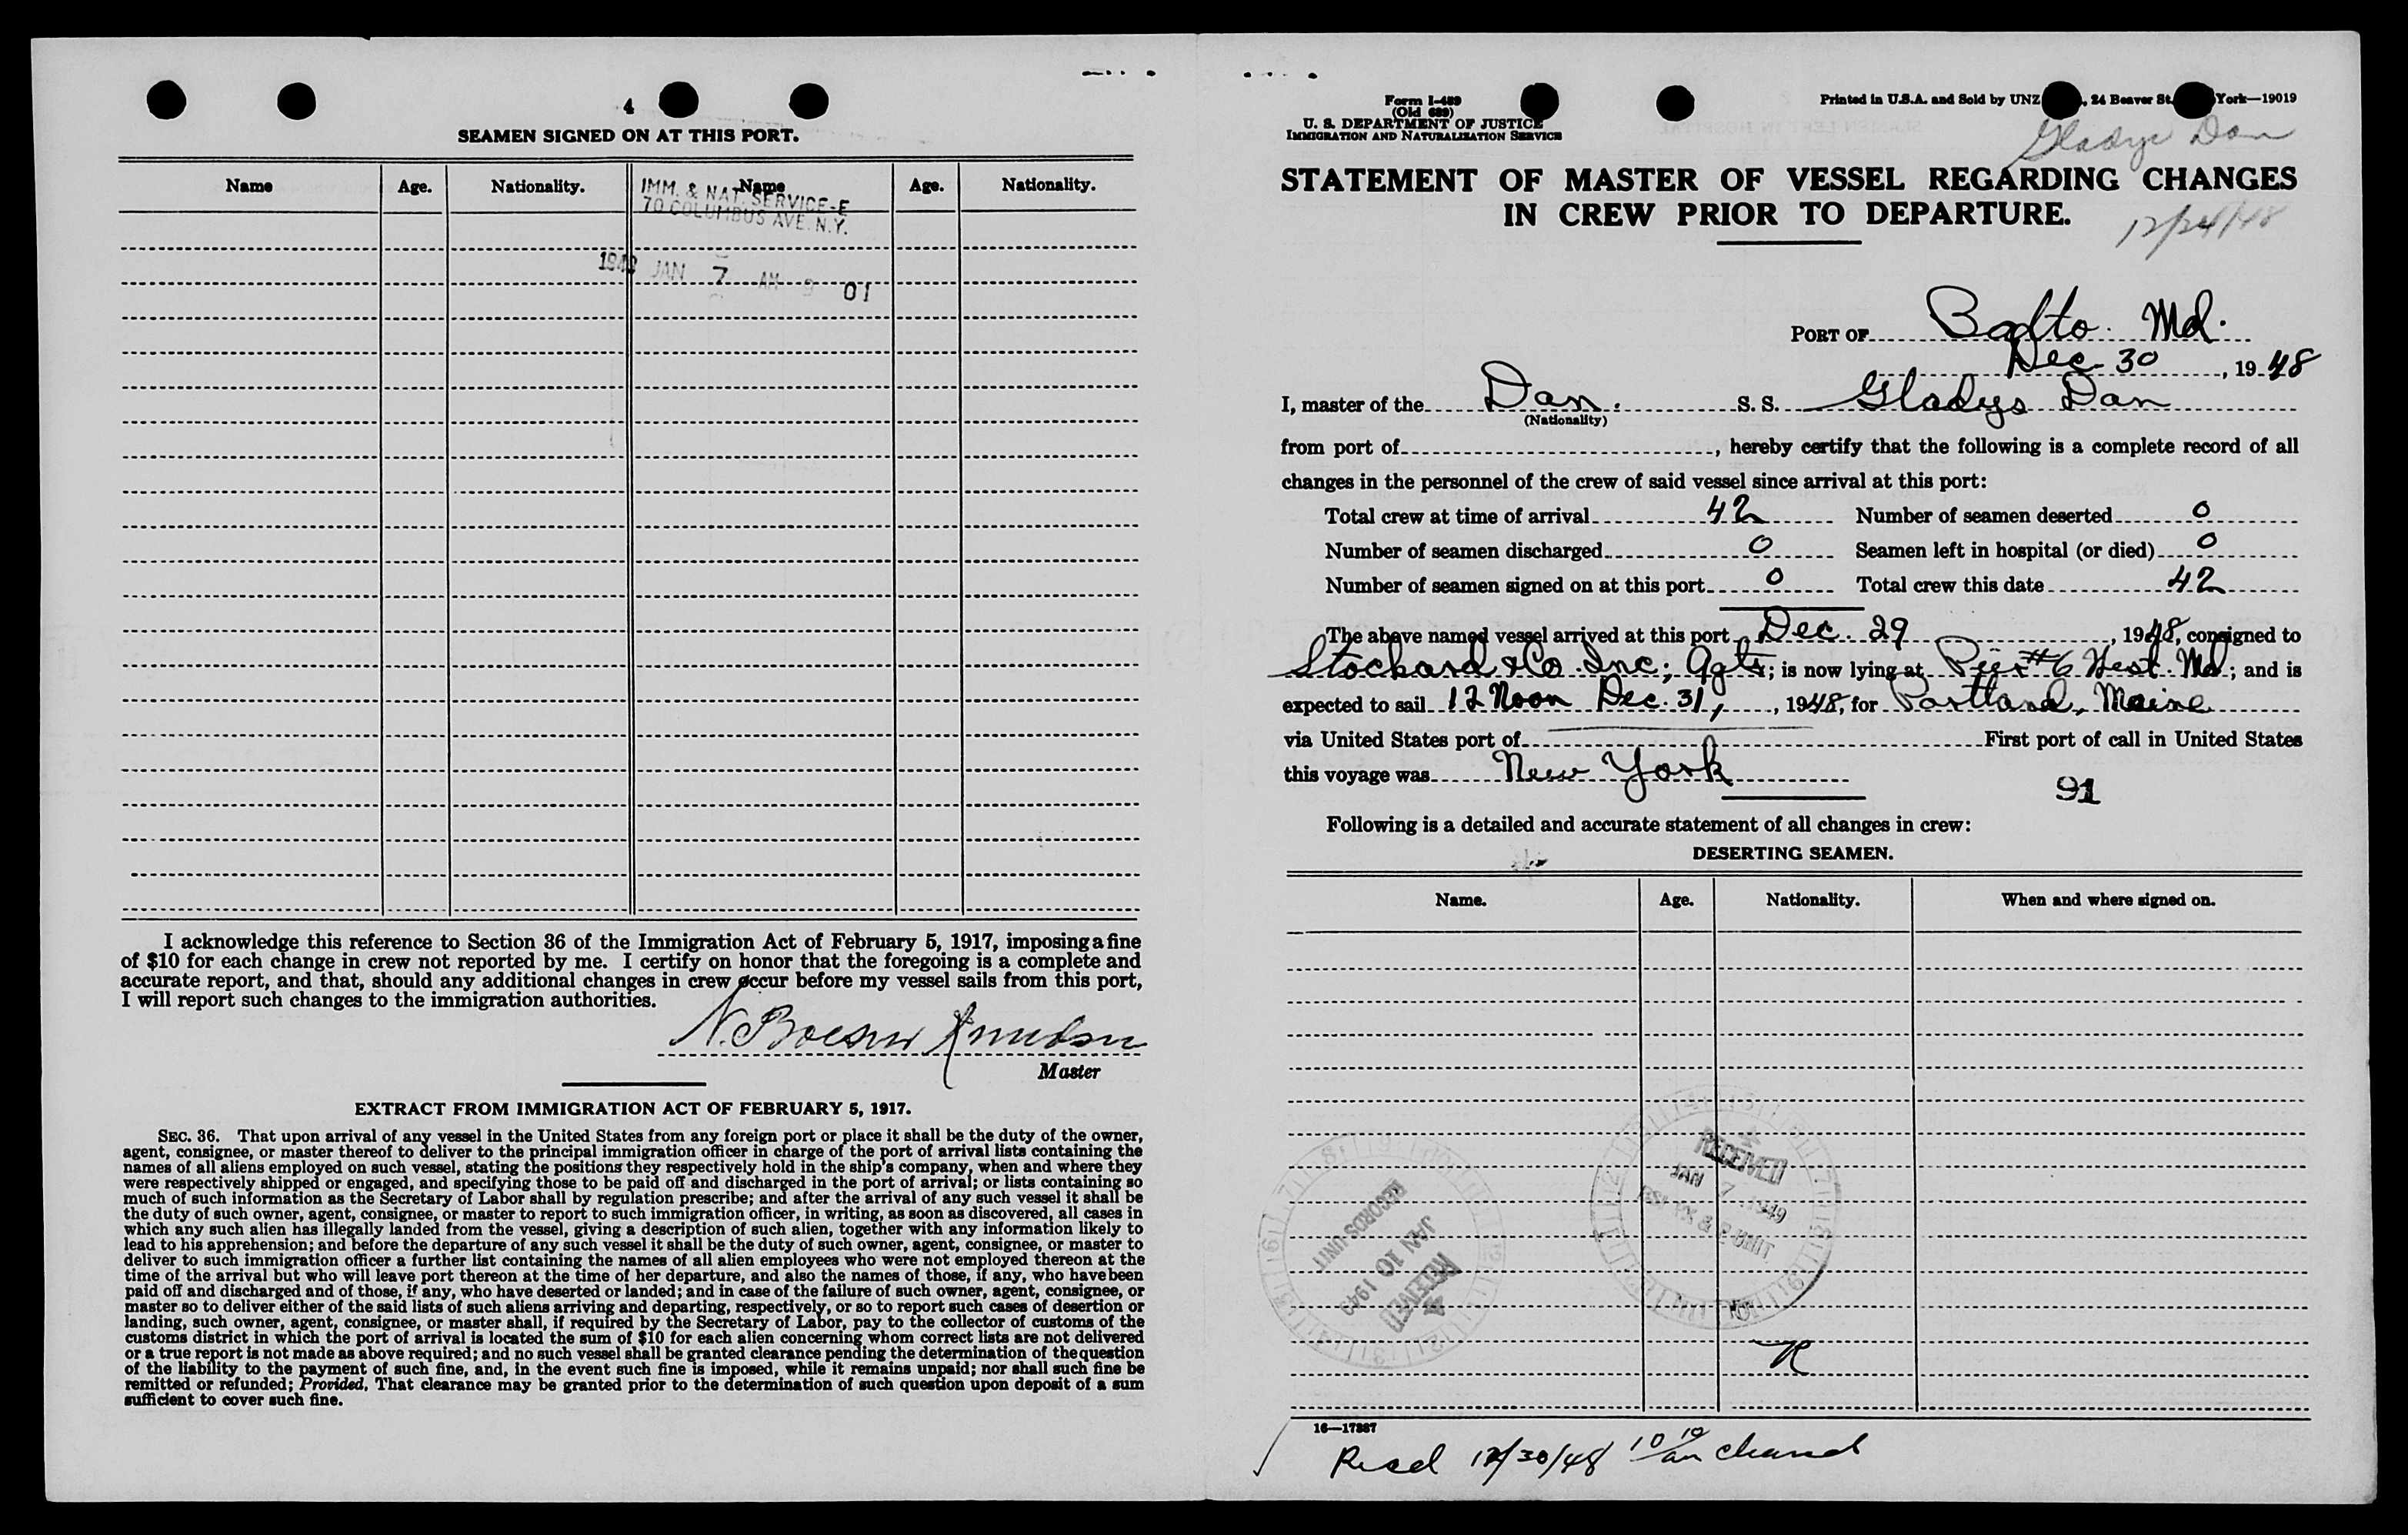 4
SEAMEN SIGNED ON AT THIS PORT.
Name Age. Nationality. Name Age. Nationality.
IMM. & NAT. SERVICE-E
70 COLUMBUS AVE. N.Y.
JAN 7 AM 9 01
I acknowledge this reference to Section 36 of the Immigration Act of February 5, 1917, imposing a fine
of $10 for each change in crew not reported by me. I certify on honor that the foregoing is a complete and
accurate report, and that, should any additional changes in crew occur before my vessel sails from this port,
I will report such changes to the immigration authorities.
Master
EXTRACT FROM IMMIGRATION ACT OF FEBRUARY 5, 1917.
SEC. 36. That upon arrival of any vessel in the United States from any foreign port or place it shall be the duty of the owner,
agent, consignee, or master thereof to deliver to the principal immigration officer in charge of the port of arrival lists containing the
names of all aliens employed on such vessel, stating the positions they respectively hold in the ship's company, when and where they
were respectively shipped or engaged, and specifying those to be paid off and discharged in the port of arrival; or lists containing so
much of such information as the Secretary of Labor shall by regulation prescribe; and after the arrival of any such vessel it shall be
the duty of such owner, agent, consignee, or master to report to such immigration officer, in writing, as soon as discovered, all cases in
which any such alien has illegally landed from the vessel, giving a description of such alien, together with any information likely to
lead to his apprehension; and before the departure of any such vessel it shall be the duty of such owner, agent, consignee, or master to
deliver to such immigration officer a further list containing the names of all alien employees who were not employed thereon at the
time of the arrival but who will leave port thereon at the time of her departure, and also the names of those, if any, who have been
paid off and discharged and of those, if any, who have deserted or landed; and in case of the failure of such owner, agent, consignee, or
master so to deliver either of the said lists of such aliens arriving and departing, respectively, or so to report such cases of desertion or
landing, such owner, agent, consignee, or master shall, if required by the Secretary of Labor, pay to the collector of customs of the
customs district in which the port of arrival is located the sum of $10 for each alien concerning whom correct lists are not delivered
or a true report is not made as above required; and no such vessel shall be granted clearance pending the determination of the question
of the liability to the payment of such fine, and, in the event such fine is imposed, while it remains unpaid; nor shall such fine be
remitted or refunded; Provided, That clearance may be granted prior to the determination of such question upon deposit of a sum
sufficient to cover such fine.
Form I-489
(Old 689)
U. S. DEPARTMENT OF JUSTICE
IMMIGRATION AND NATURALIZATION SERVICE
Printed in U.S.A. and Sold by UNZ , 24 Beaver St. York—19019
Gladys Dan
STATEMENT OF MASTER OF VESSEL REGARDING CHANGES
IN CREW PRIOR TO DEPARTURE.
12/24/48
PORT OF Balto. Md.
Dec 30, 1948
I, master of the Dan. S. S. Gladys Dan
(Nationality)
from port of , hereby certify that the following is a complete record of all
changes in the personnel of the crew of said vessel since arrival at this port:
Total crew at time of arrival 42 Number of seamen deserted 0
Number of seamen discharged 0 Seamen left in hospital (or died) 0
Number of seamen signed on at this port 0 Total crew this date 42
The above named vessel arrived at this port Dec. 29, 1948, consigned to
Stockard & Co. Inc; Agts; is now lying at Pier #6 West. Md; and is
expected to sail 12 Noon Dec. 31, 1948, for Portland, Maine
via United States port of First port of call in United States
this voyage was New York
91
Following is a detailed and accurate statement of all changes in crew:
DESERTING SEAMEN.
Name. Age. Nationality. When and where signed on.
RECEIVED
JAN 7 1949
RECORDS UNIT
JAN 10 1949
RECEIVED
R
16—17887
Recd 12/30/48 10 10 am